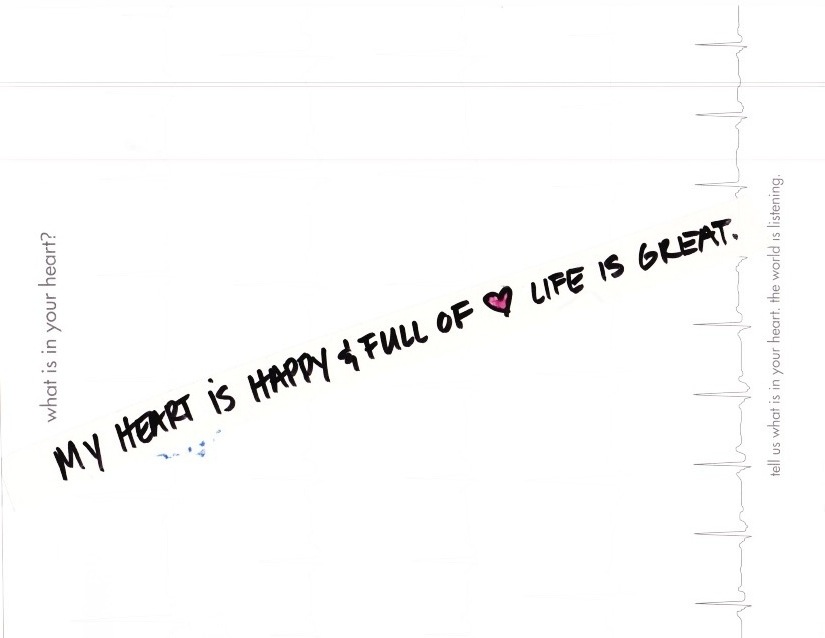 what is in your heart?
MY HEART iS HAPPY & FULL OF ♥ LIFE IS GREAT.
tell us what is in your heart. the world is listening.